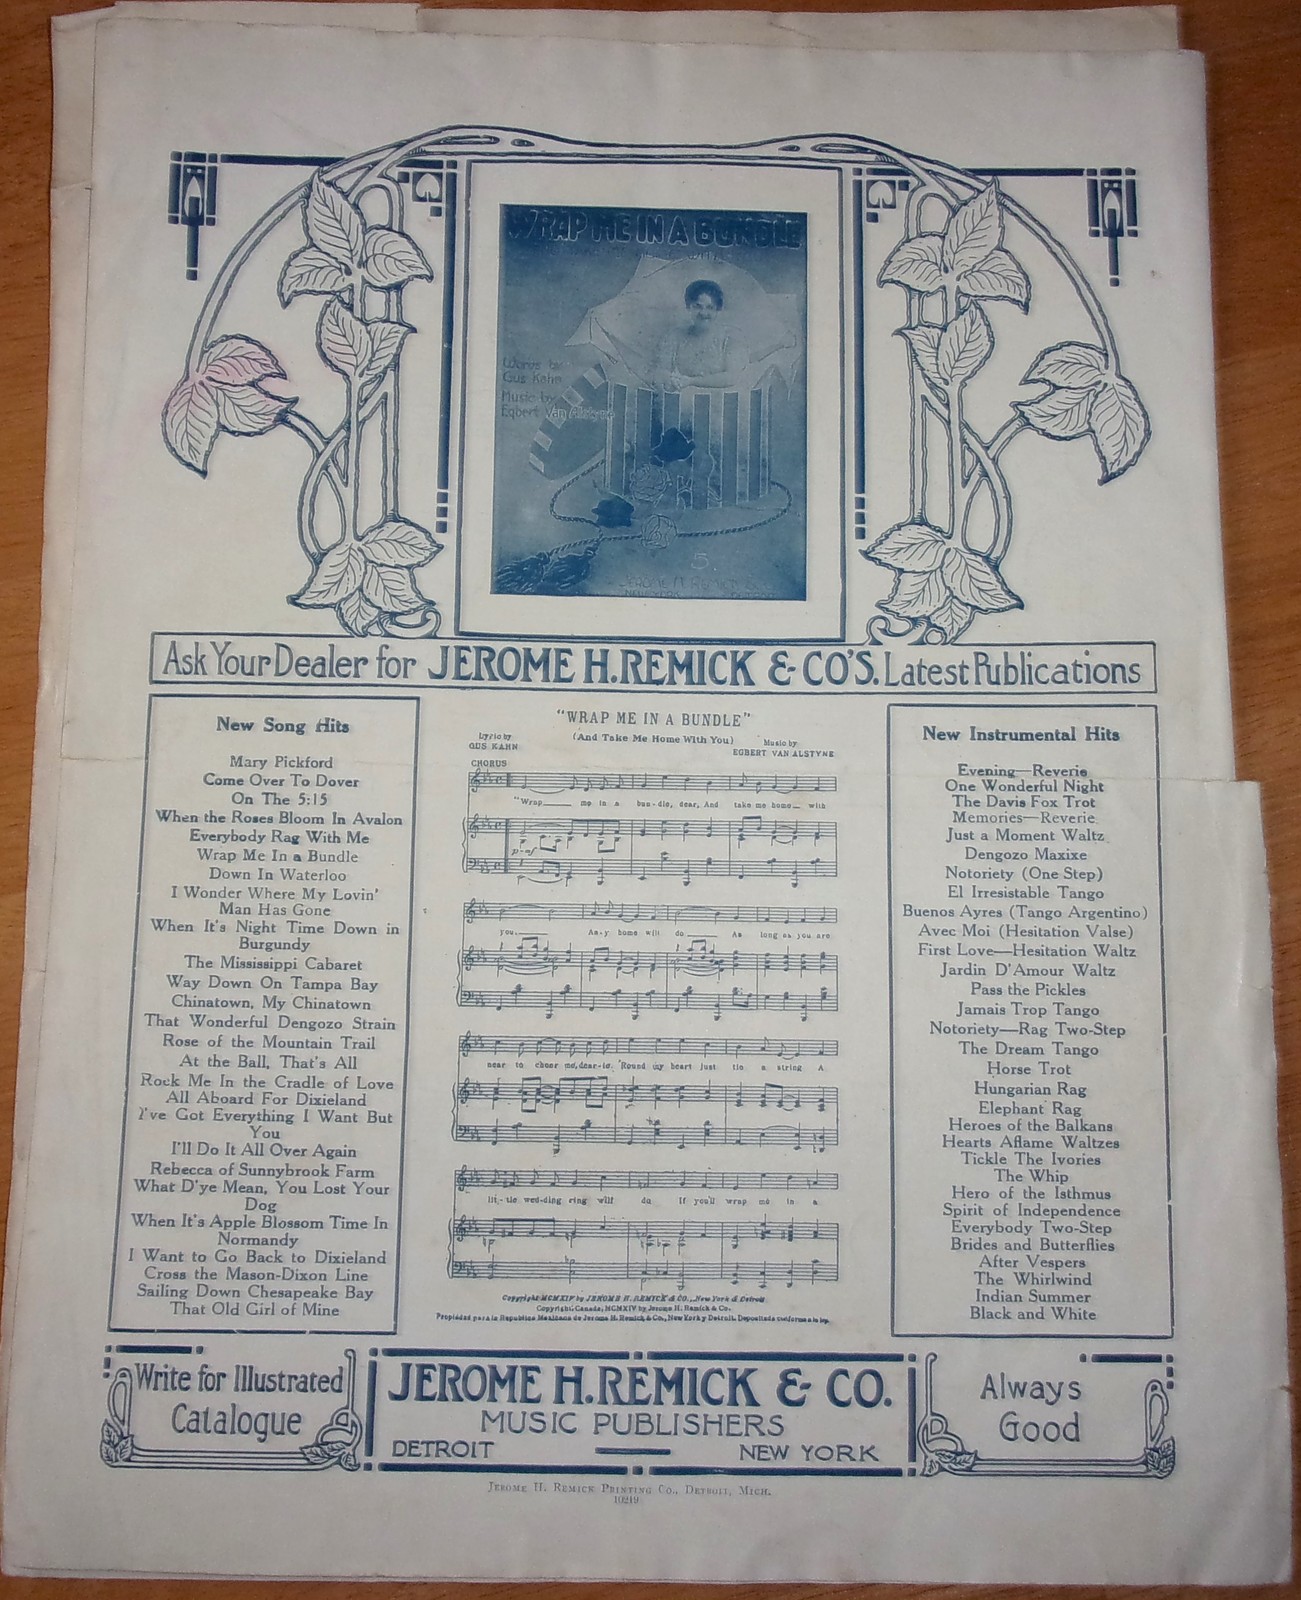 WRAP ME IN A BUNDLE
Words by
Gus Kahn
Music by
Egbert Van Alstyne
5
JEROME H. REMICK & CO.
NEW YORK DETROIT
Ask Your Dealer for JEROME H. REMICK & CO'S. Latest Publications
New Song Hits
Mary Pickford
Come Over To Dover
On The 5:15
When the Roses Bloom In Avalon
Everybody Rag With Me
Wrap Me In a Bundle
Down In Waterloo
I Wonder Where My Lovin'
Man Has Gone
When It's Night Time Down in
Burgundy
The Mississippi Cabaret
Way Down On Tampa Bay
Chinatown, My Chinatown
That Wonderful Dengozo Strain
Rose of the Mountain Trail
At the Ball, That's All
Rock Me In the Cradle of Love
All Aboard For Dixieland
I've Got Everything I Want But
You
I'll Do It All Over Again
Rebecca of Sunnybrook Farm
What D'ye Mean, You Lost Your
Dog
When It's Apple Blossom Time In
Normandy
I Want to Go Back to Dixieland
Cross the Mason-Dixon Line
Sailing Down Chesapeake Bay
That Old Girl of Mine
"WRAP ME IN A BUNDLE"
(And Take Me Home With You)
Lyric by
GUS KAHN
Music by
EGBERT VAN ALSTYNE
CHORUS
"Wrap me in a bun-dle, dear, And take me home with
p-mf
you. Any home will do As long as you are
near to cheer me, dear-ie. 'Round my heart just tie a string A
lit-tle wed-ding ring will do If you'll wrap me in a
Copyright MCMXIV by JEROME H. REMICK & CO., New York & Detroit
Copyright, Canada, MCMXIV by Jerome H. Remick & Co.
Propiedad para la Republica Mexicana de Jerome H. Remick & Co., New York y Detroit. Depositada conforme a la ley.
New Instrumental Hits
Evening—Reverie
One Wonderful Night
The Davis Fox Trot
Memories—Reverie
Just a Moment Waltz
Dengozo Maxixe
Notoriety (One Step)
El Irresistable Tango
Buenos Ayres (Tango Argentino)
Avec Moi (Hesitation Valse)
First Love—Hesitation Waltz
Jardin D'Amour Waltz
Pass the Pickles
Jamais Trop Tango
Notoriety—Rag Two-Step
The Dream Tango
Horse Trot
Hungarian Rag
Elephant Rag
Heroes of the Balkans
Hearts Aflame Waltzes
Tickle The Ivories
The Whip
Hero of the Isthmus
Spirit of Independence
Everybody Two-Step
Brides and Butterflies
After Vespers
The Whirlwind
Indian Summer
Black and White
Write for Illustrated
Catalogue
JEROME H. REMICK & CO.
MUSIC PUBLISHERS
DETROIT NEW YORK
Always
Good
JEROME H. REMICK PRINTING CO., DETROIT, MICH.
10219